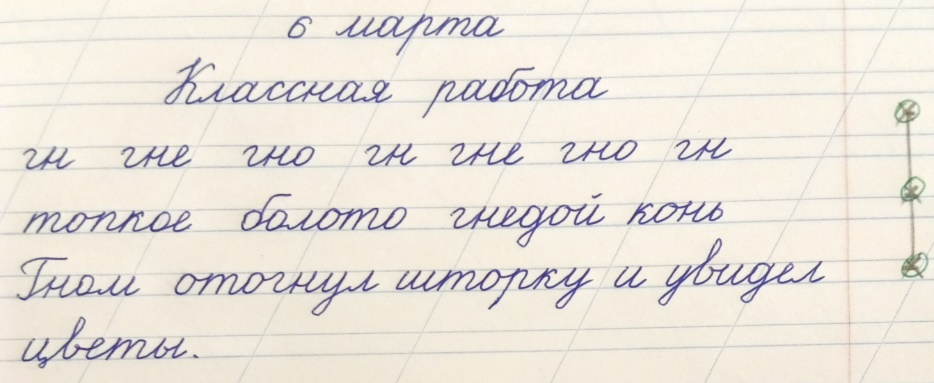 6 марта
Классная работа
гн гне гно гн гне гно гн
топкое болото гнедой конь
Гном отогнул шторку и увидел
цветы.